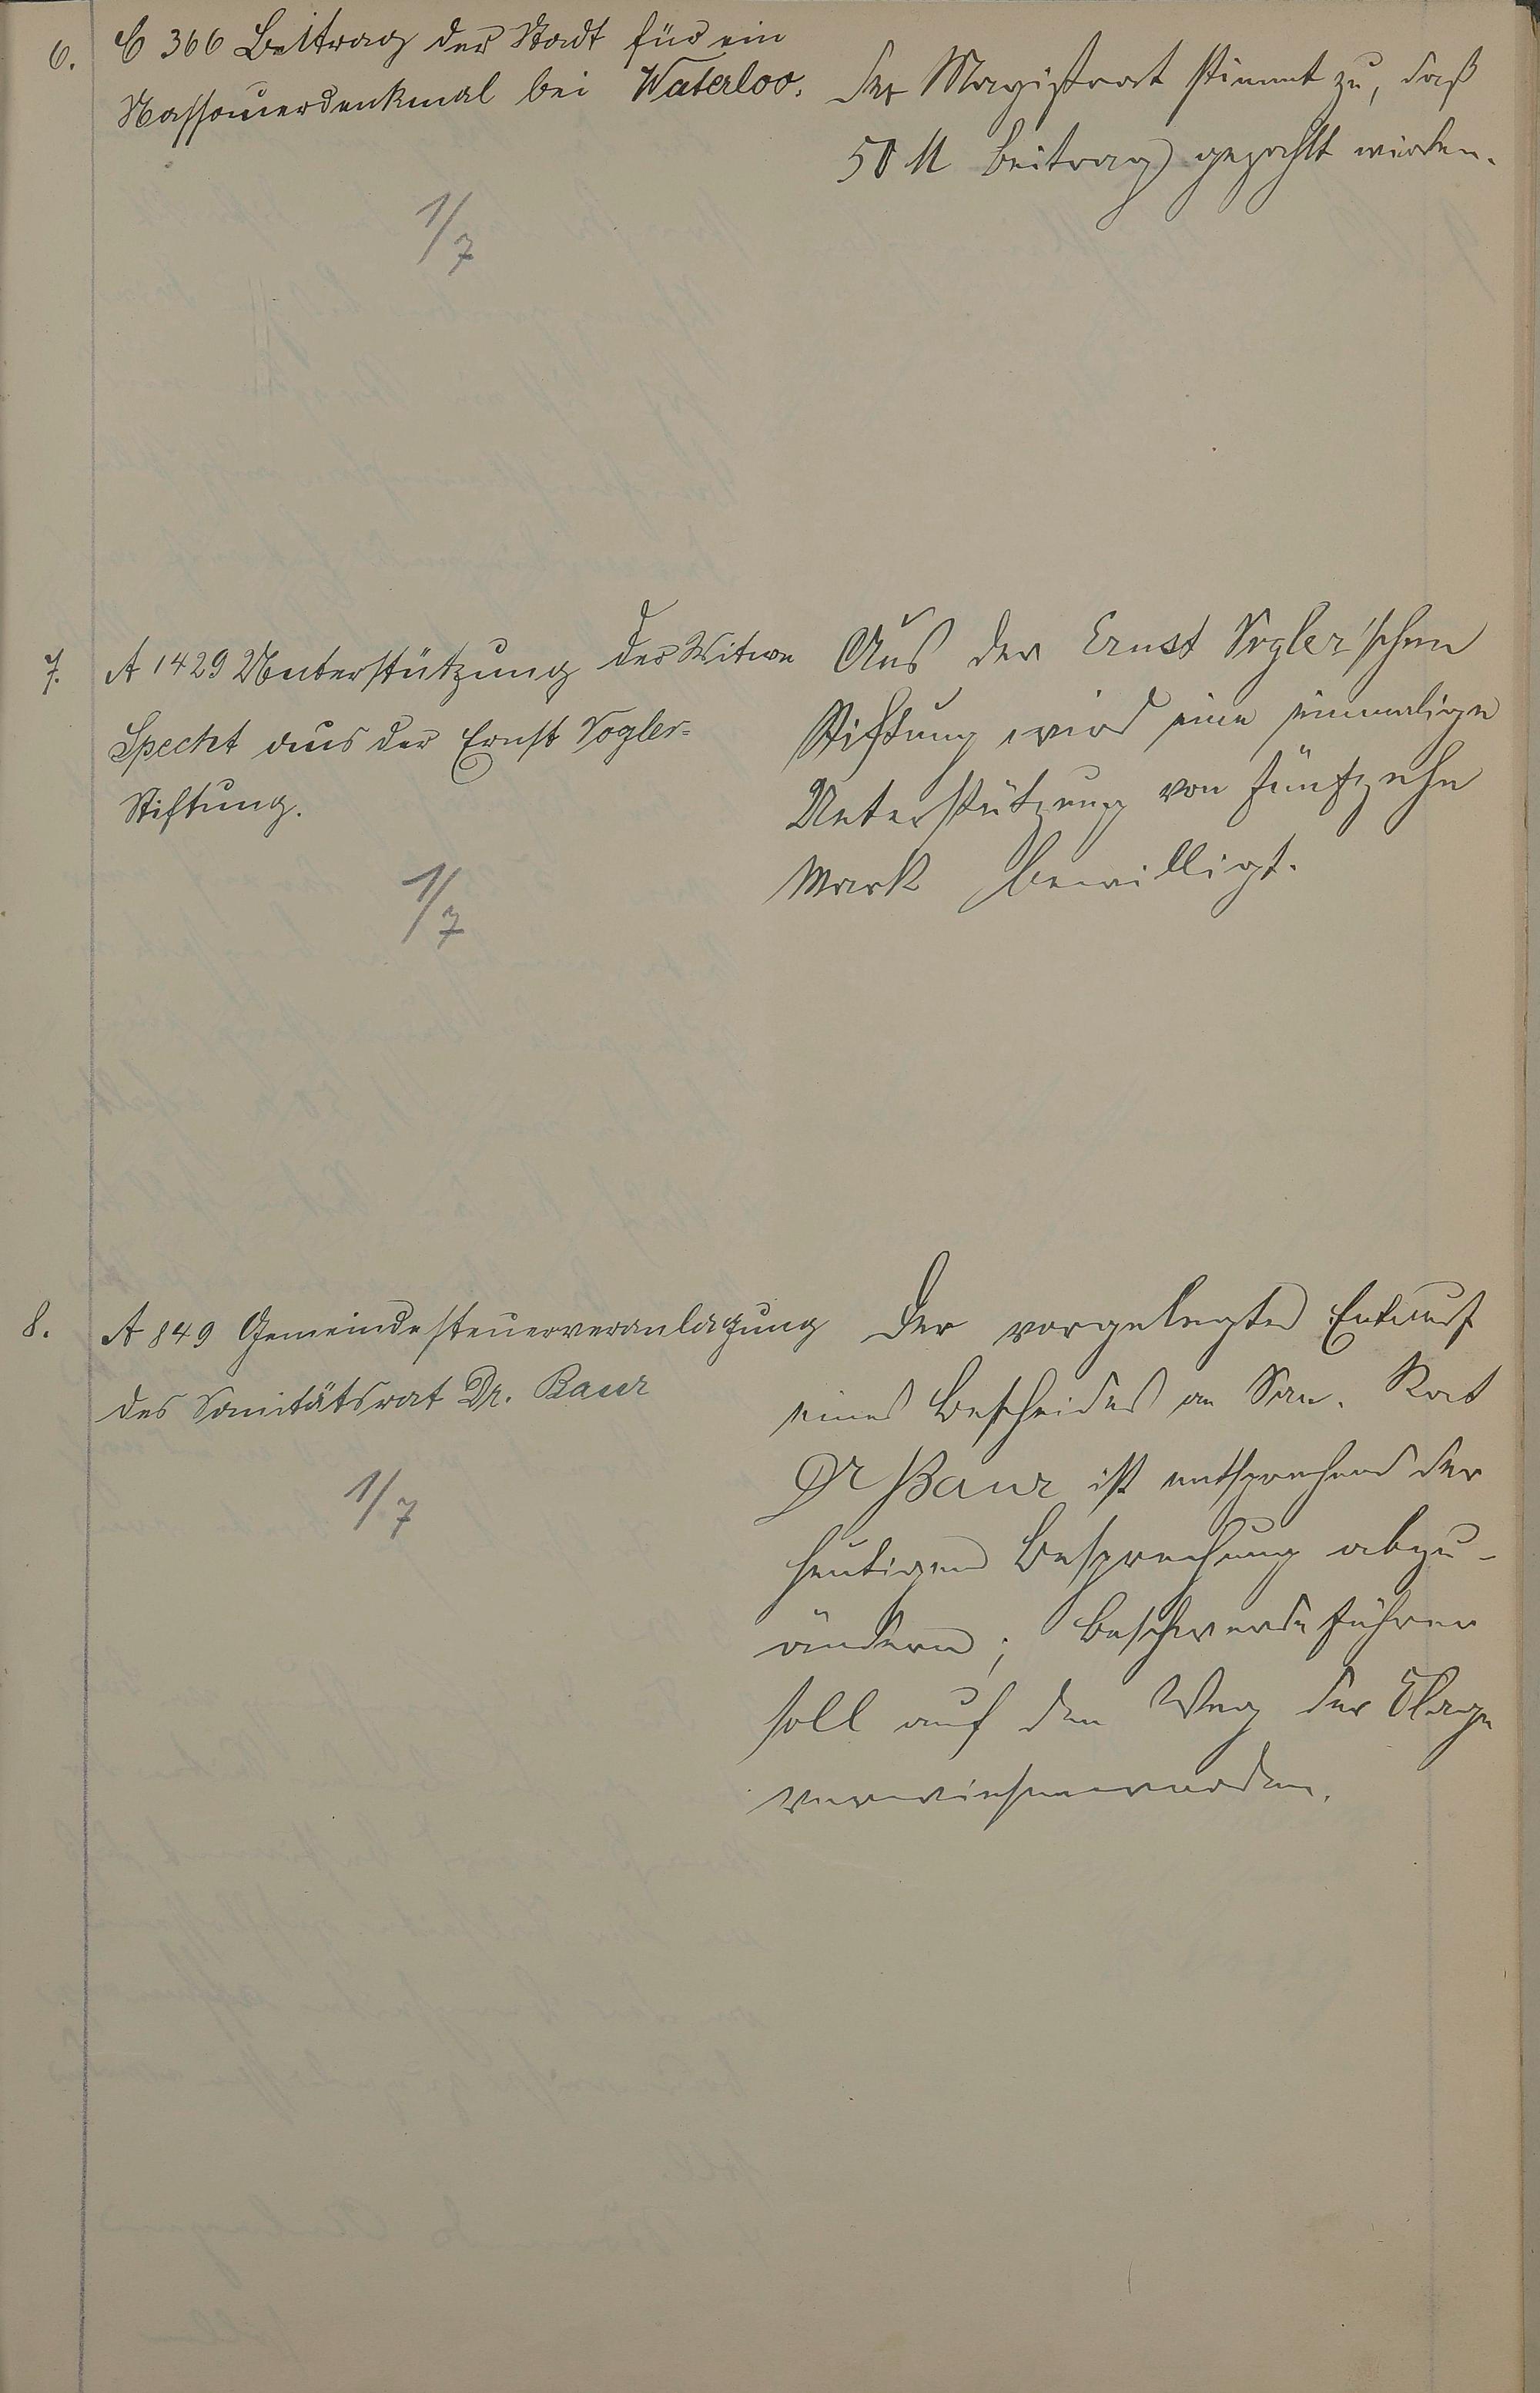 6. C 366 Beitrag der Stadt für ein
Nassauerdenkmal bei Waterloo.
Der Magistrat stimmt zu, daß
50 M Beitrag gezahlt werden.
1/7
7. A 1429 Unterstützung der Witwe
Specht aus der Ernst Vogler-
Stiftung.
Aus der Ernst Vogler'schen
Stiftung wird eine einmalige
Unterstützung von fünfzehn
Mark bewilligt.
1/7
8. A 849 Gemeindesteuerveranlagung
des Sanitätsrat Dr. Baur
Der vorgelegte Entwurf
eines Bescheides an San. Rat
Dr Baur ist entsprechend der
heutigen Besprechung abzu-
ändern; Beschwerdeführer
soll auf den Weg der Klage
verwiesen werden.
1/7